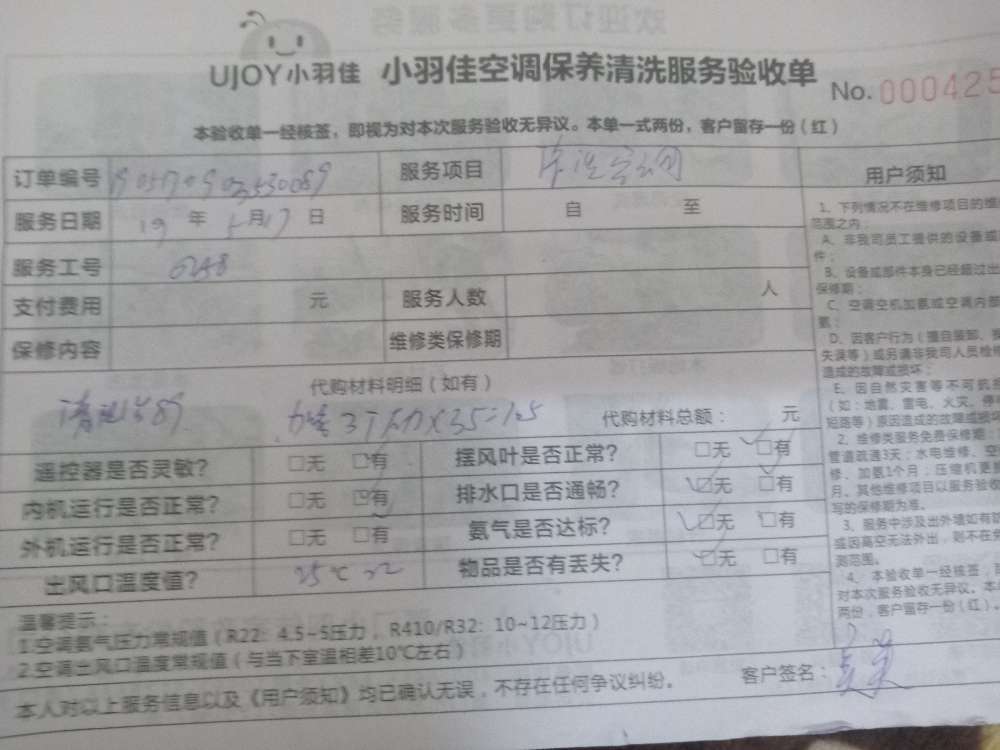 UJOY小羽佳 小羽佳空调保养清洗服务验收单
No. 000425
本验收单一经核签，即视为对本次服务验收无异议。本单一式两份，客户留存一份（红）
订单编号 服务项目
服务日期 19 年 5月17日 服务时间 自 至
服务工号 0248
支付费用 元 服务人数 人
保修内容 维修类保修期
代购材料明细（如有）
清洗 加氨3个压力X35=105 代购材料总额： 元
遥控器是否灵敏？ □无 □有 摆风叶是否正常？ □无 □有
内机运行是否正常？ □无 □有 排水口是否通畅？ □无 □有
外机运行是否正常？ □无 □有 氨气是否达标？ □无 □有
出风口温度值？ 25℃ 22 物品是否有丢失？ □无 □有
温馨提示：
1.空调氨气压力常规值（R22：4.5~5压力，R410/R32：10~12压力）
2.空调出风口温度常规值（与当下室温相差10℃左右）
本人对以上服务信息以及《用户须知》均已确认无误，不存在任何争议纠纷。 客户签名：
用户须知
1、下列情况不在维修项目的维
范围之内：
A、非我司员工提供的设备或
件；
B、设备或部件本身已经超过出
保修期；
C、空调空机加氨或空调内部
氨；
D、因客户行为（擅自装卸、
失误等）或另请非我司人员检修
造成的故障或损坏；
E、因自然灾害等不可抗
（如：地震、雷电、火灾、停
短路等）原因造成的故障或损
2、维修类服务免费保修期：
管道疏通3天；水电维修、空
修、加氨1个月；压缩机更
月、其他维修项目以服务验收
写的保修期为准。
3、服务中涉及出外墙如有
或因高空无法外出，则不在
测范围。
4、本验收单一经核签，
对本次服务验收无异议。本
两份，客户留存一份（红）。